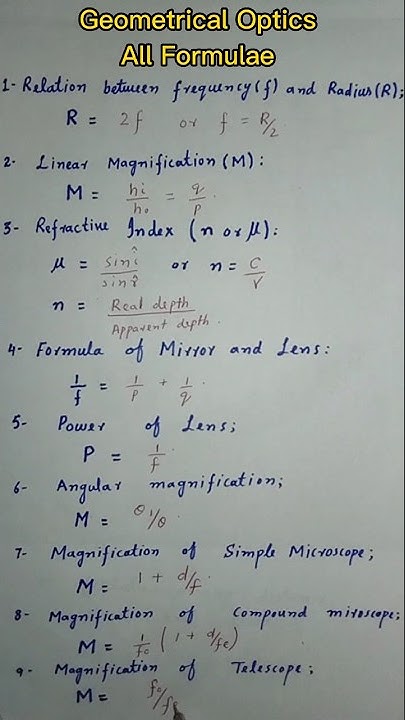 Geometrical Optics
All Formulae
1- Relation between frequency(f) and Radius(R);
R = 2f or f = R/2
2- Linear Magnification (M):
M = hi/ho = q/p.
3- Refractive Index (n or μ):
μ = sin î / sin r̂ or n = C/V
n = Real depth / Apparent depth.
4- Formula of Mirror and Lens:
1/f = 1/p + 1/q.
5- Power of Lens;
P = 1/f.
6- Angular magnification;
M = θ'/θ.
7- Magnification of Simple Microscope;
M = 1 + d/f.
8- Magnification of Compound miroscope;
M = 1/fo (1 + d/fe)
9- Magnification of Telescope;
M = fo/fe